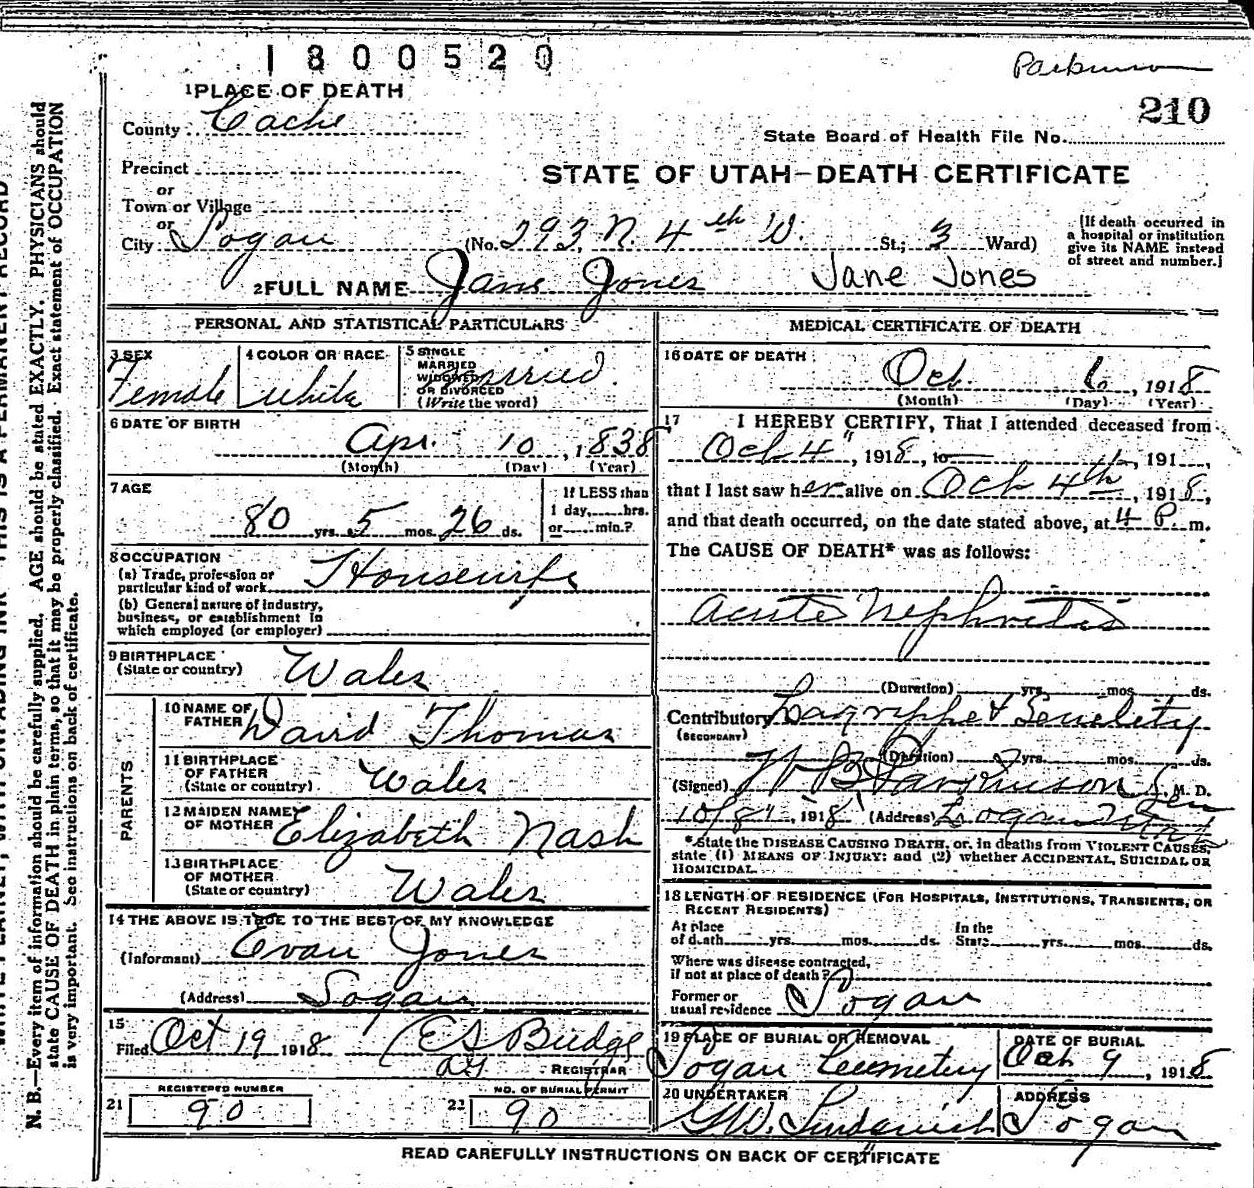 1800520
Parkinson
210
1 PLACE OF DEATH
County Cache
State Board of Health File No.
Precinct
or
STATE OF UTAH—DEATH CERTIFICATE
Town or Village
or
City Logan (No. 293 N. 4th W. St.; 3 Ward)
[If death occurred in
a hospital or institution
give its NAME instead
of street and number.]
2 FULL NAME Jane Jones Jane Jones
PERSONAL AND STATISTICAL PARTICULARS
3 SEX
Female
4 COLOR OR RACE
white
5 SINGLE
MARRIED
WIDOWED
OR DIVORCED
(Write the word)
married.
6 DATE OF BIRTH
Apr. 10, 1838
(Month) (Day) (Year)
7 AGE
80 yrs. 5 mos. 26 ds.
If LESS than
1 day, hrs.
or min.?
8 OCCUPATION
(a) Trade, profession or
particular kind of work Housewife
(b) General nature of industry,
business, or establishment in
which employed (or employer)
9 BIRTHPLACE
(State or country) Wales
PARENTS
10 NAME OF
FATHER David Thomas
11 BIRTHPLACE
OF FATHER
(State or country) Wales
12 MAIDEN NAME
OF MOTHER Elizabeth Nash
13 BIRTHPLACE
OF MOTHER
(State or country) Wales
14 THE ABOVE IS TRUE TO THE BEST OF MY KNOWLEDGE
(Informant) Evan Jones
(Address) Logan
15
Filed Oct 19 1918
REGISTRAR
REGISTERED NUMBER
21 90
NO. OF BURIAL PERMIT
22 90
MEDICAL CERTIFICATE OF DEATH
16 DATE OF DEATH
Oct. 6, 1918
(Month) (Day) (Year)
17 I HEREBY CERTIFY, That I attended deceased from
Oct 4", 1918, to 191
that I last saw her alive on Oct 4th, 1918,
and that death occurred, on the date stated above, at 4 P. m.
The CAUSE OF DEATH* was as follows:
Acute Nephritis
(Duration) yrs. mos. ds.
Contributory Lagrippe & Senility
(SECONDARY)
(Duration) 2 yrs. mos. ds.
(Signed) W B Parkinson Sen M. D.
10/8", 1918 (Address) Logan Utah
*State the DISEASE CAUSING DEATH, or, in deaths from VIOLENT CAUSES,
state (1) MEANS OF INJURY; and (2) whether ACCIDENTAL, SUICIDAL OR
HOMICIDAL.
18 LENGTH OF RESIDENCE (FOR HOSPITALS, INSTITUTIONS, TRANSIENTS, OR
RECENT RESIDENTS)
At place
of death yrs. mos. ds.
In the
State yrs. mos. ds.
Where was disease contracted,
if not at place of death?
Former or
usual residence Logan
19 PLACE OF BURIAL OR REMOVAL
Logan Cemetery
DATE OF BURIAL
Oct 9, 1918
20 UNDERTAKER
ADDRESS
Logan
READ CAREFULLY INSTRUCTIONS ON BACK OF CERTIFICATE
N. B.—Every item of information should be carefully supplied. AGE should be stated EXACTLY. PHYSICIANS should
state CAUSE OF DEATH in plain terms, so that it may be properly classified. Exact statement of OCCUPATION
is very important. See instructions on back of certificate.